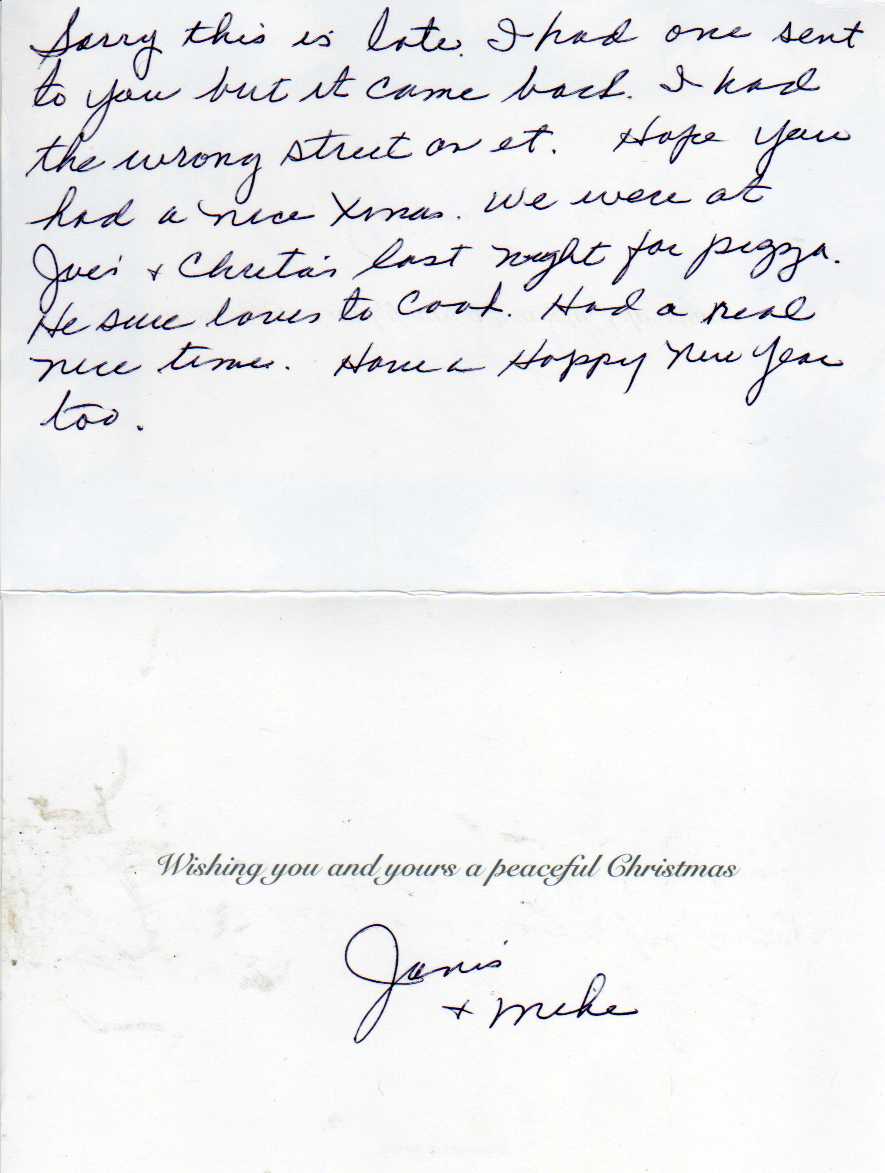 Sorry this is late. I had one sent
to you but it came back. I had
the wrong street on it. Hope you
had a nice Xmas. We were at
Joe's + Christa's last night for pizza.
He sure loves to cook. Had a real
nice time. Have a Happy New Year
too.
Wishing you and yours a peaceful Christmas
Janis
+ Mike